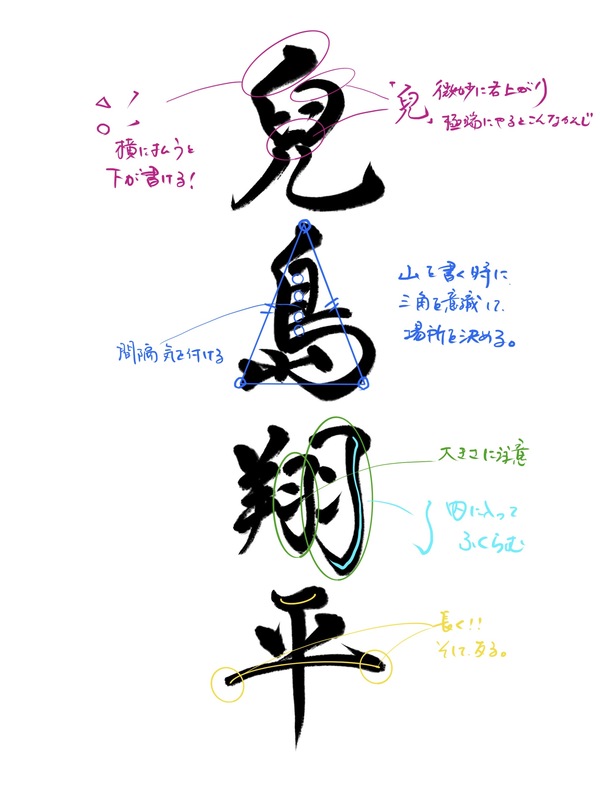 兒島翔平
「兒」
微妙に右上がり
極端にやるとこんなかんじ
横に払うと
下が書ける!
山を書く時に、
三角を意識して、
場所を決める。
間隔気を付ける
大きさに注意
凹に入って
ふくらむ
長く!!
そして、反る。